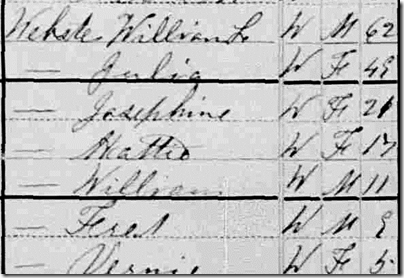 Webste William L W M 62
— Julia W F 49
— Josephine W F 21
— Hattie W F 17
— William W M 11
— W M 9
— Vernie W F 5